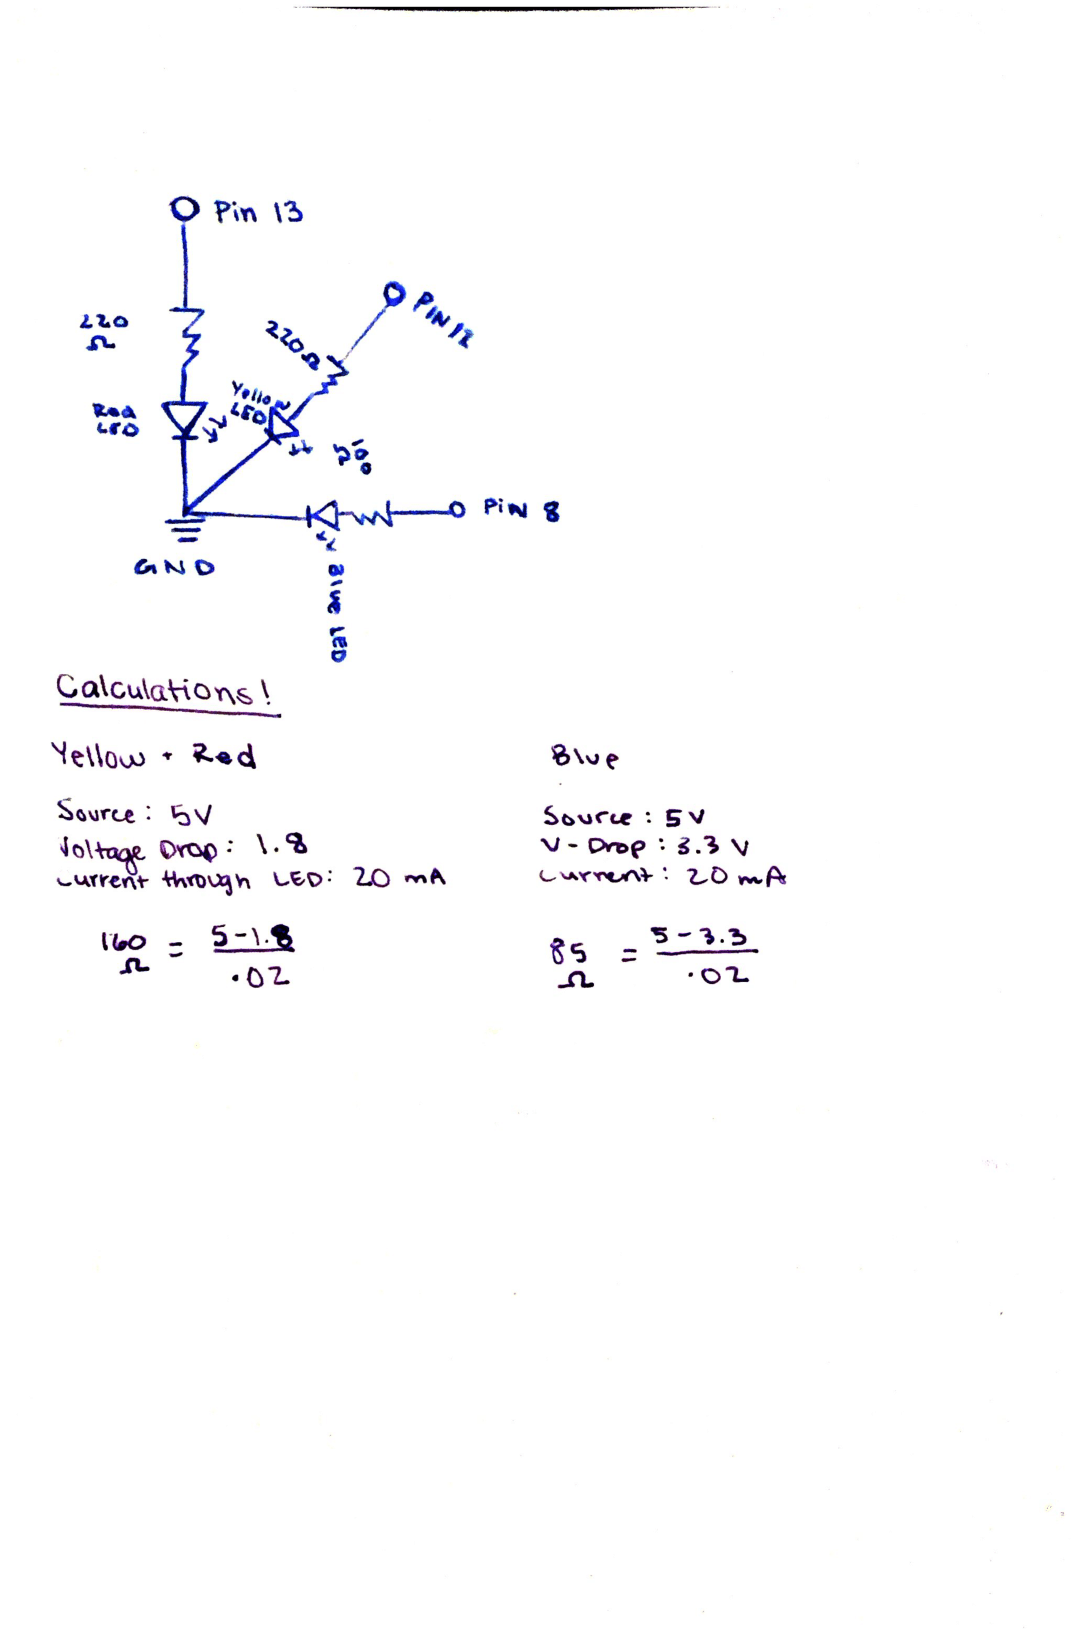 Pin 13
PIN 12
220
Ω
220Ω
Yellow
LED
Red
LED
PiN 8
GND
Blue LED
Calculations!
Yellow + Red
Source: 5V
Voltage Drop: 1.8
Current through LED: 20 mA
160 Ω = 5-1.8 / .02
Blue
Source: 5V
V-Drop: 3.3 V
Current: 20mA
85 Ω = 5-3.3 / .02